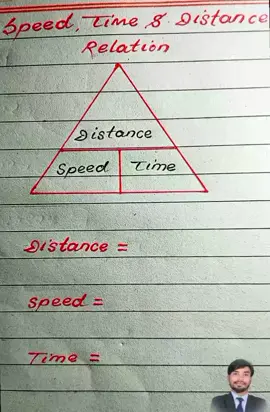 Speed, Time & Distance
Relation
Distance
Speed Time
Distance =
Speed =
Time =